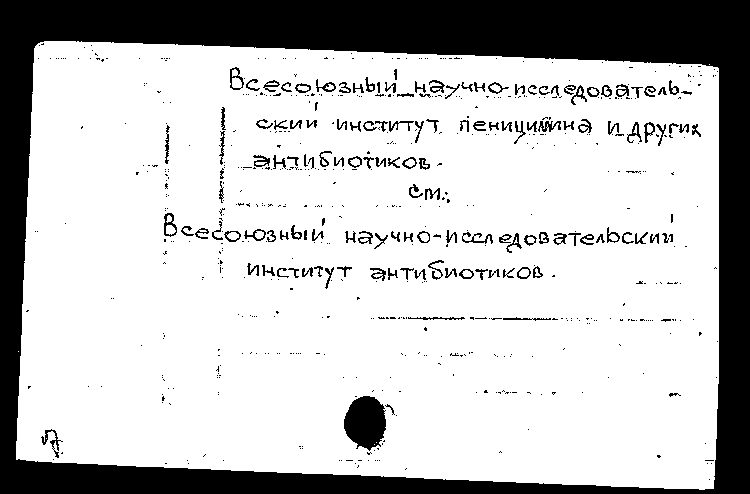 Всесоюзный научно-исследователь-
ский институт пенициллина и других
антибиотиков.
см.:
Всесоюзный научно-исследовательский
институт антибиотиков.